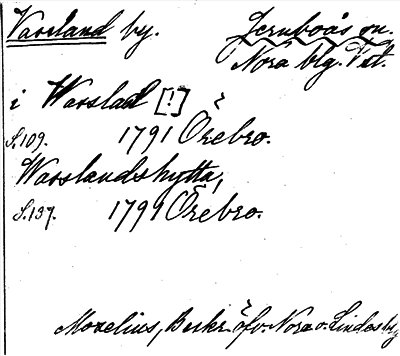 Vassland by. Jernboås sn.
Nora blg. Vtl.
i Wasslad [!]
S. 109. 1791 Örebro.
Wasslandshytta,
S. 137. 1799 Örebro.
Moxelius, Beskr. öfv. Nora o. Lindesby